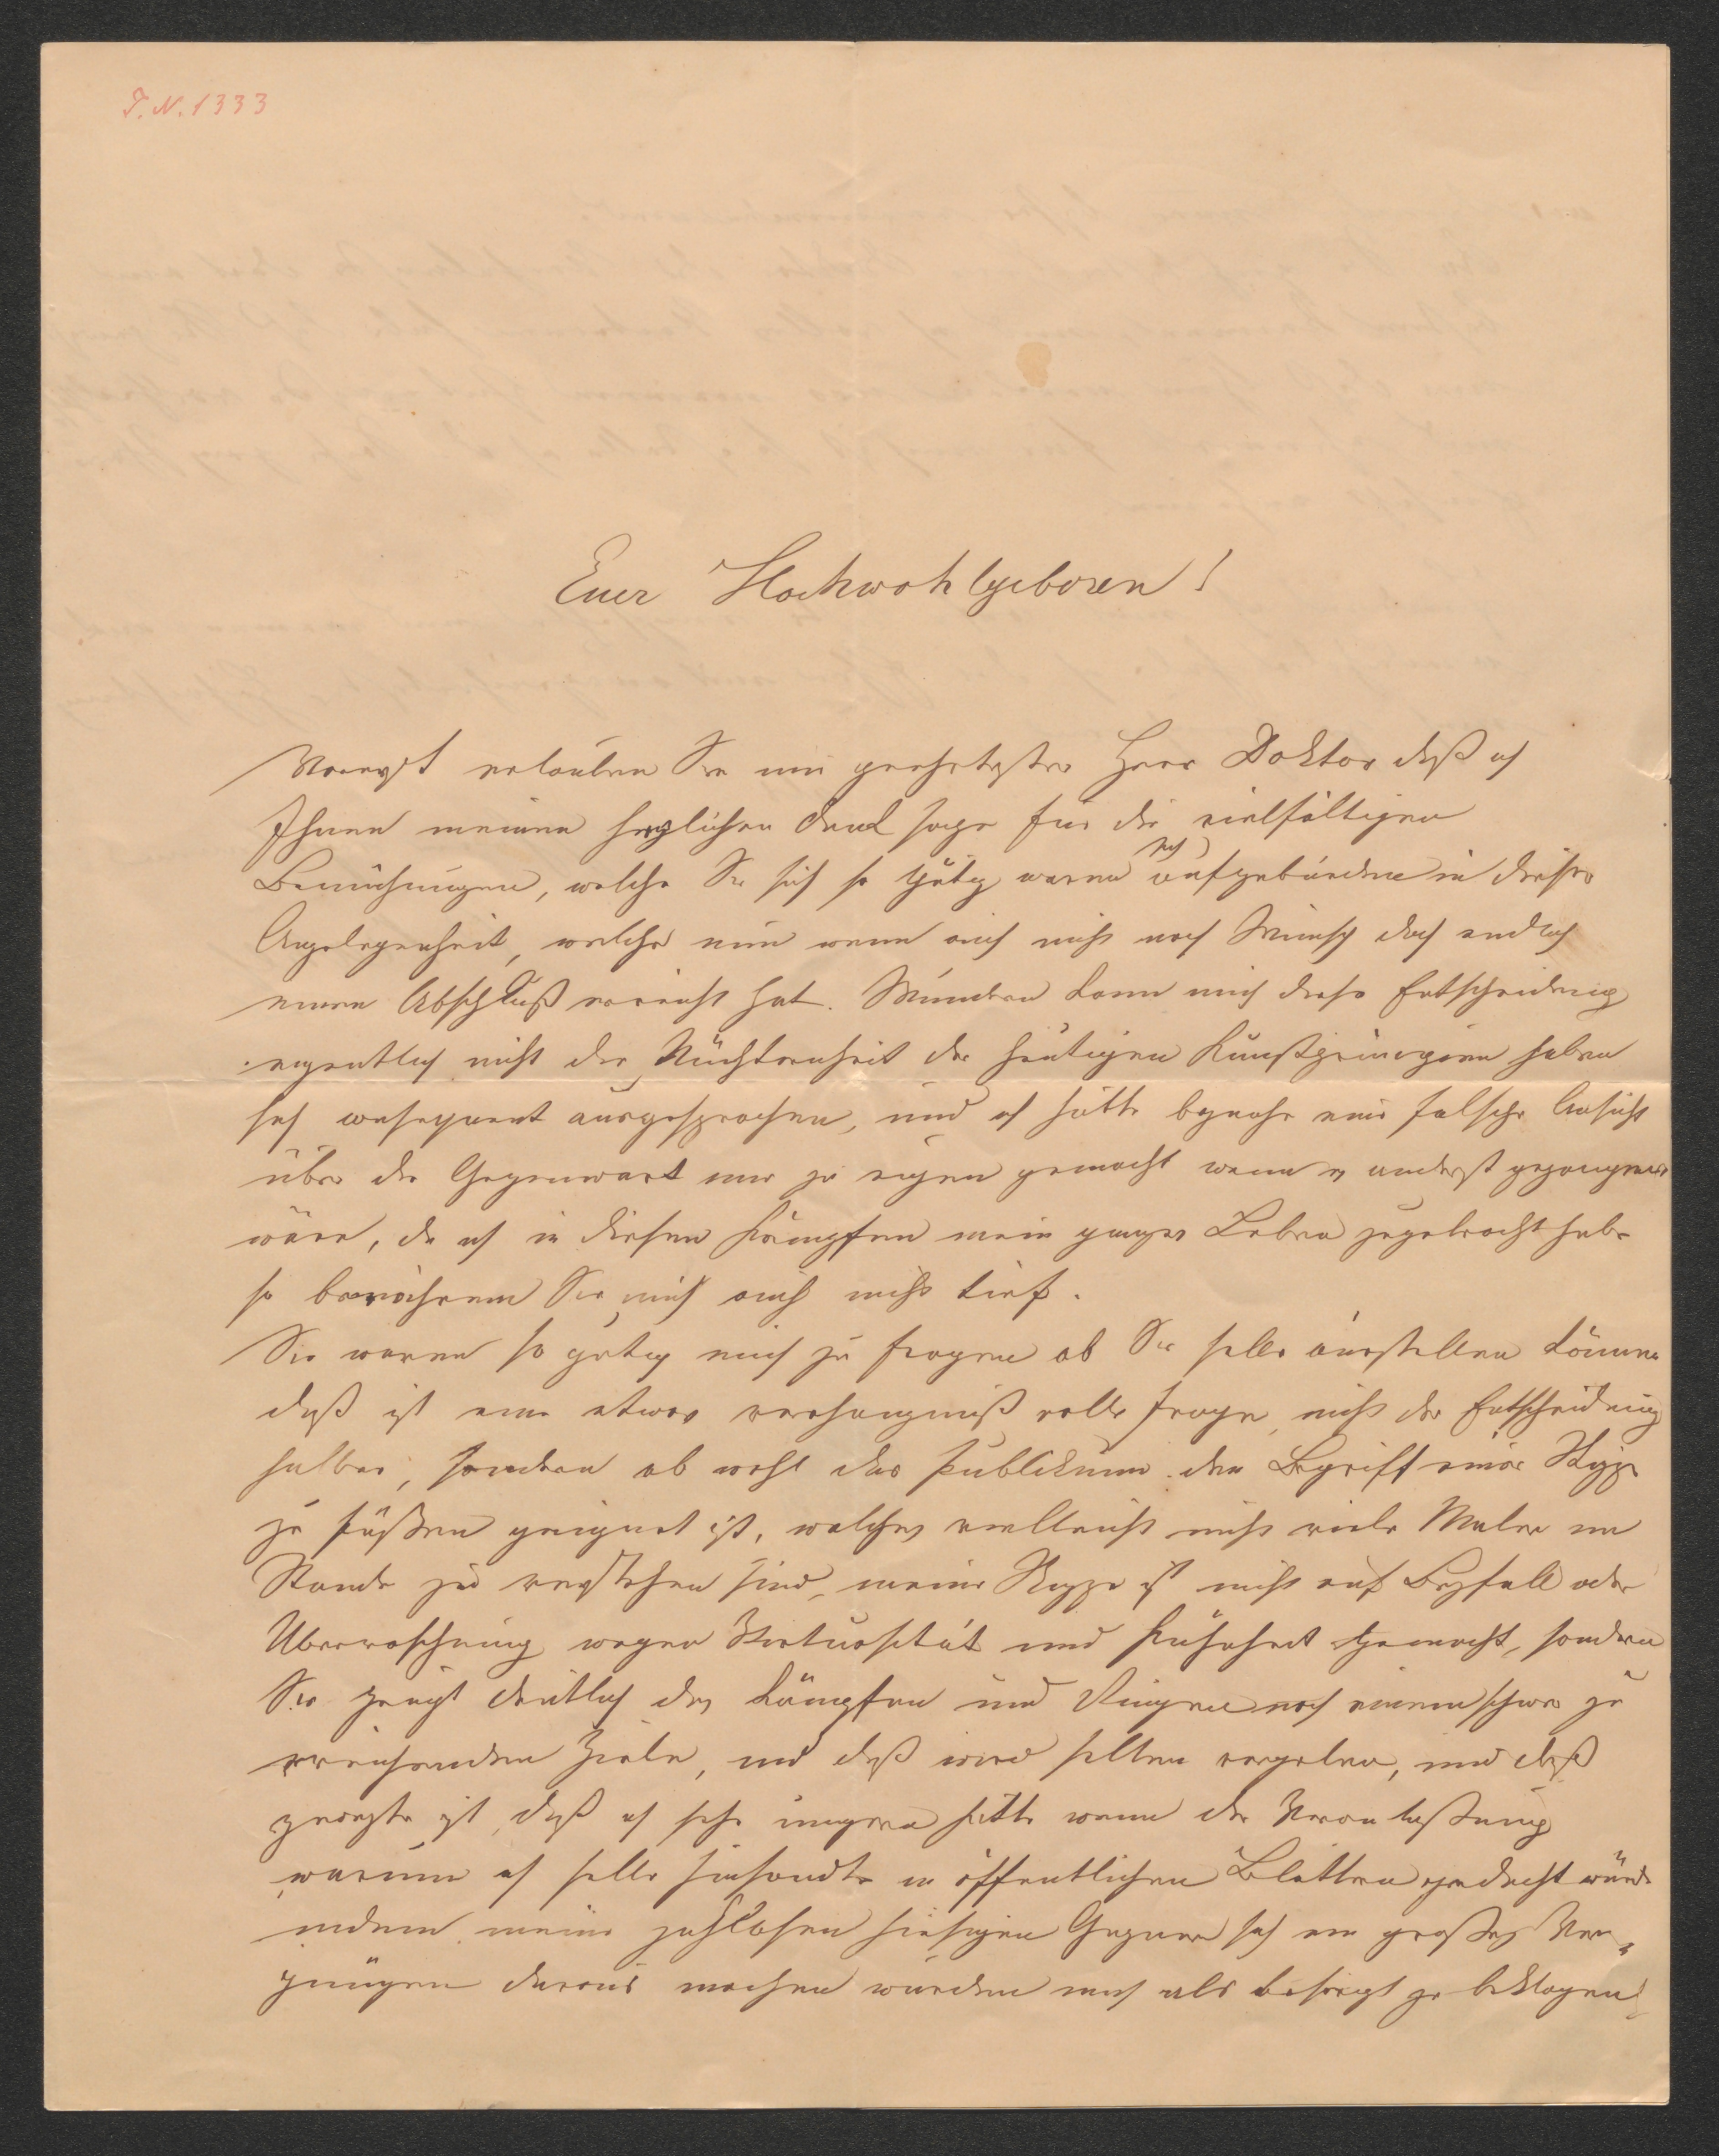 I. N. 1333
Euer Hochwohlgeboren!
Vorerst erlauben Sie mir geehrtester Herr Doktor daß ich
Ihnen meinen herzlichen Dank sage für die vielfältigen
Bemühungen, welche Sie sich so gütig waren aufzubürden in dieser
Angelegenheit, welche nun wenn auch nicht nach Wunsch doch endlich
einen Abschluß erreicht hat. Wundern kann mich diese Entscheidung
eigentlich nicht die Nüchternheit der heutigen Kunstprincipien haben
sich consequent ausgesprochen, und ich hätte beynahe eine falsche Ansicht
über die Gegenwart mir zu eigen gemacht wenn es anderst gegangen
wäre, da ich in diesen Kämpfen mein ganzes Leben zugebracht habe
so Sie mich auch nicht tief.
Sie waren so gütig mich zu fragen ob Sie selbe ausstellen können
daß ist eine etwas verhängniß volle Frage, nicht der Entscheidung
halber, sondern ob wohl das Publikum den Begriff einer Skizze
zu faßen geeignet ist, welches vielleicht nicht viele Maler im
Stande zu verstehen sind, meine Skizze ist nicht auf Beyfall oder
Überraschung wegen Virtuosität und Kühnheit gemacht, sondern
Sie zeugt deutlich das Kämpfen und Ringen nach einem schwer zu
erreichenden Ziele, und daß wird selten vergeben, und daß
zweyte ist, daß ich sehr ungern hätte wenn der Veranlaßung
warum ich selbe hinsandte in öffentlichen Blättern gedacht würde
indem meine zahllosen hiesigen Gegner sich ein großes Ver-
gnügen daraus machen würden mich als besiegt zu beklagen